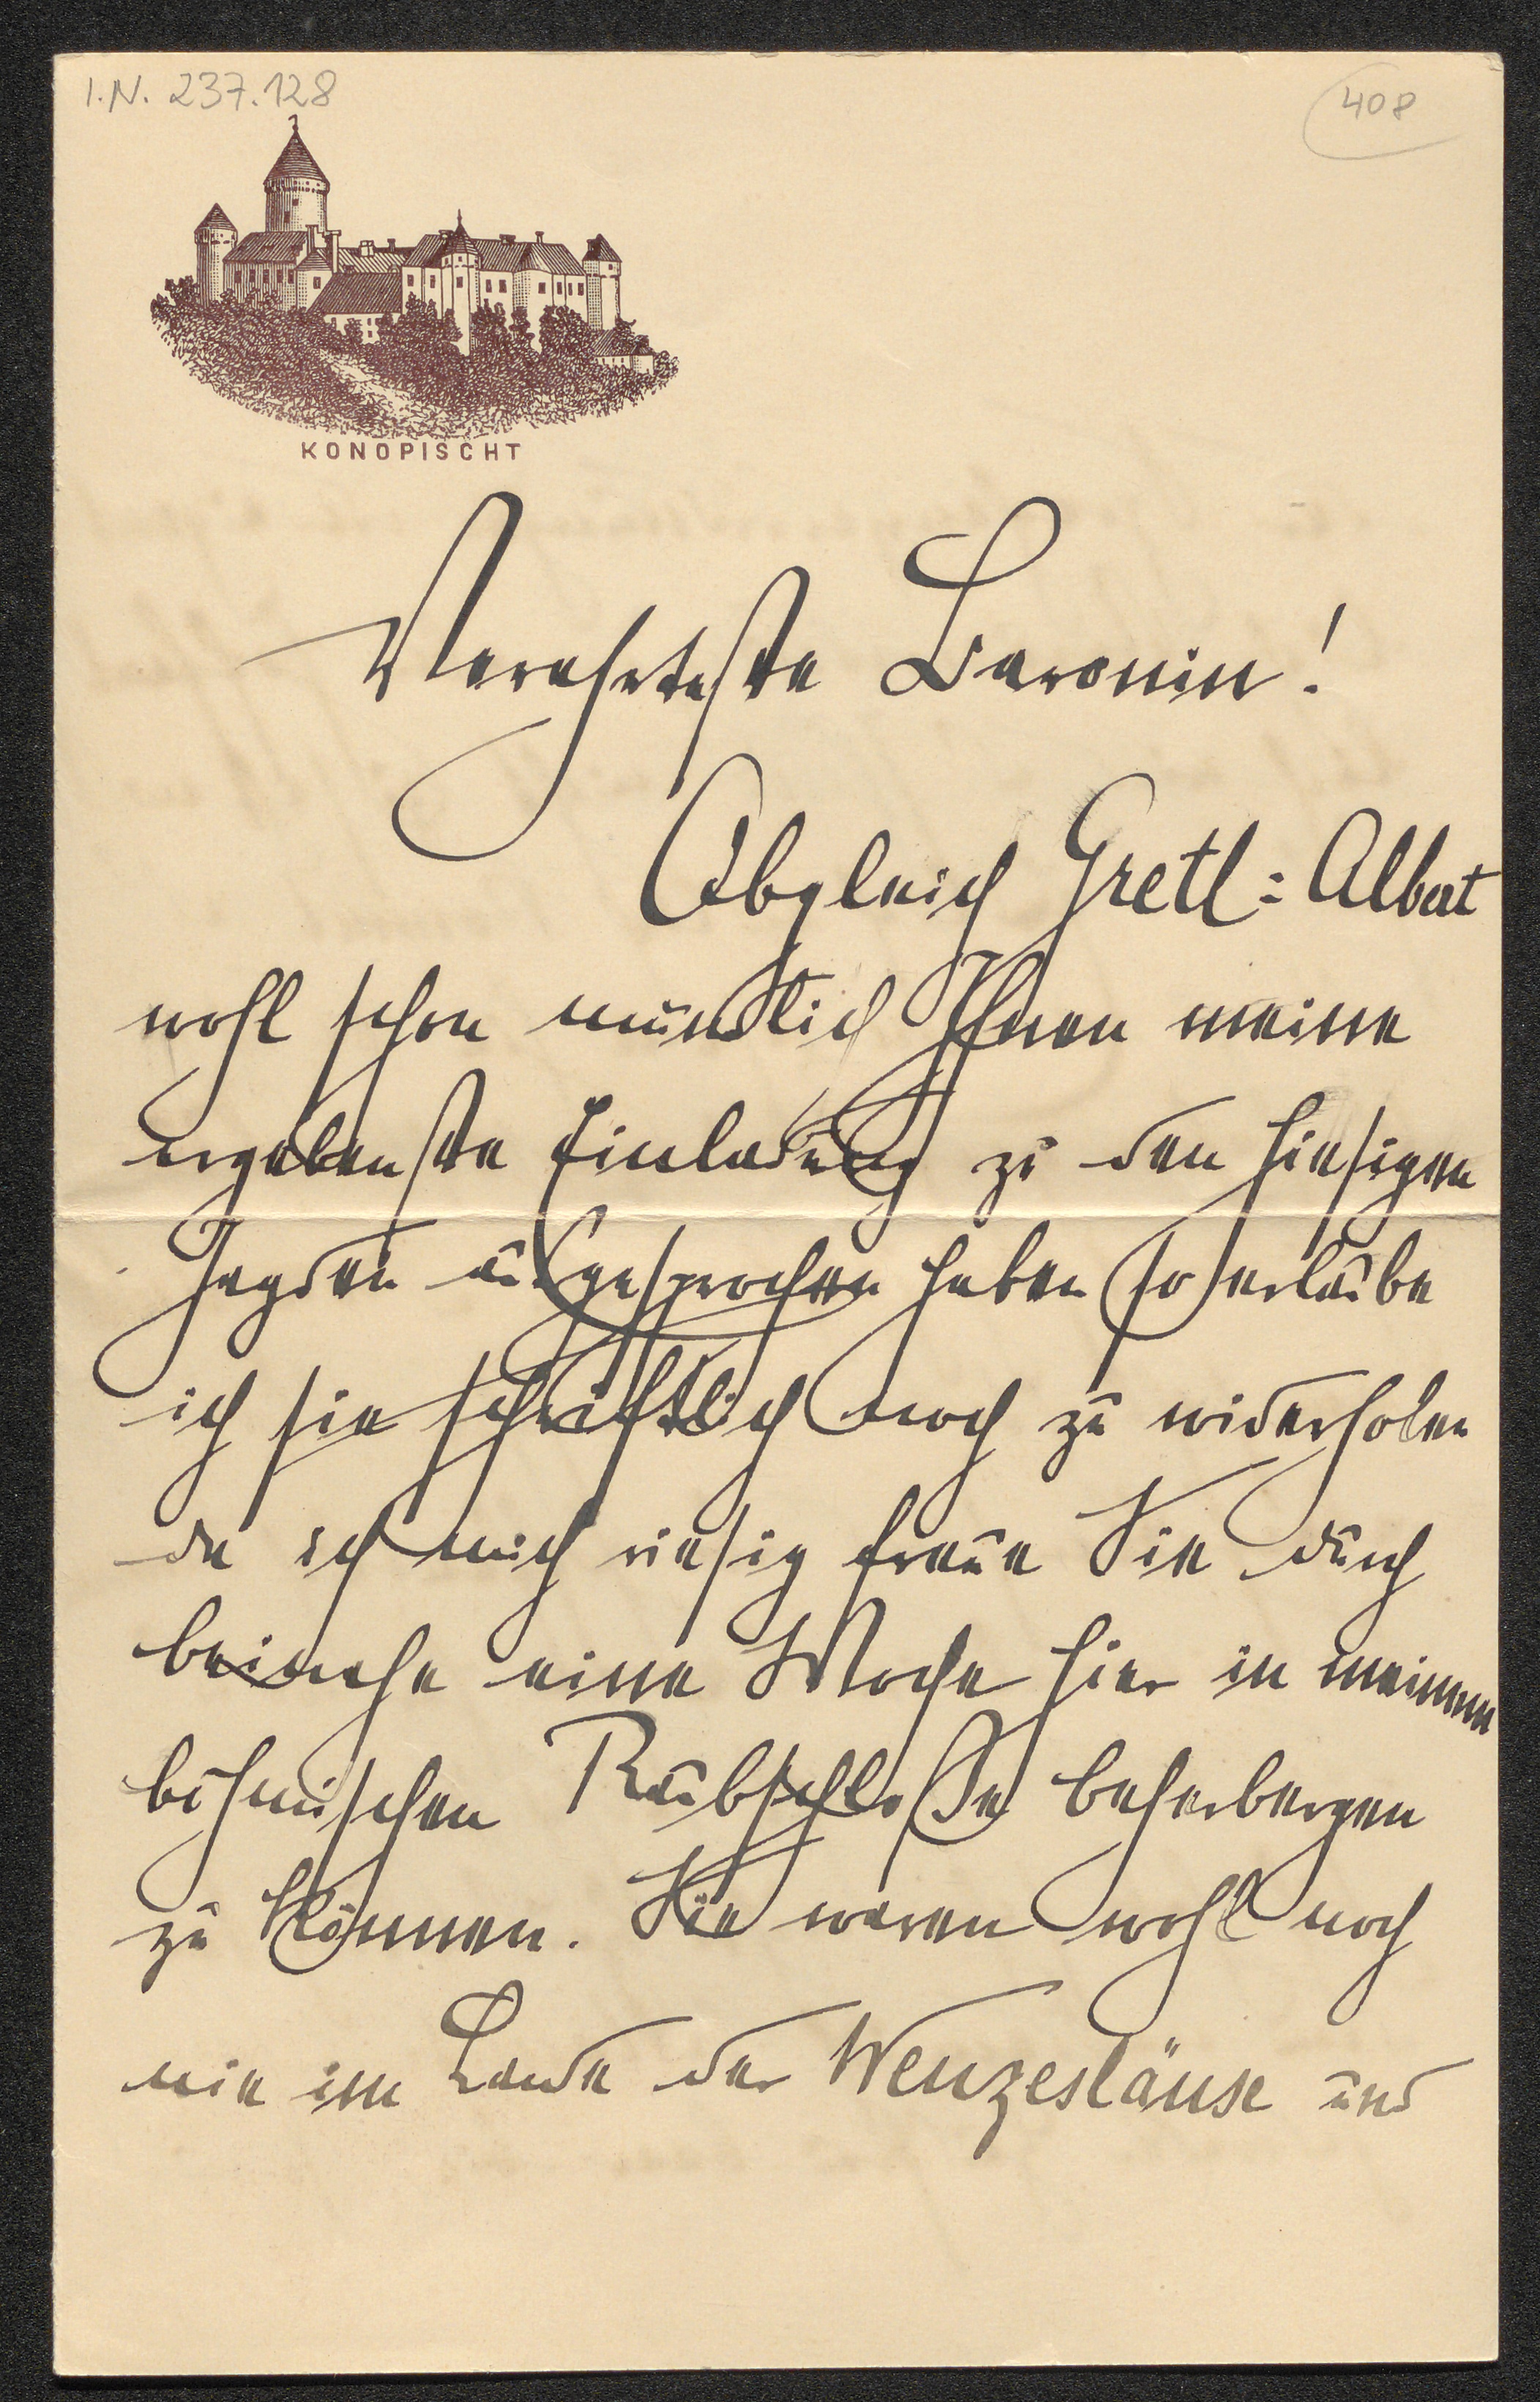 I.N. 237.128
408
KONOPISCHT
Verehrteste Baronin!
Obgleich Gretl-Albert
wohl schon mündlich Ihnen meine
ergebenste Einladung zu den hiesigen
Jagden ausgesprochen haben so erlaube
ich sie schriftlich noch zu widerholen
da ich mich riesig freue Sie durch
beinahe eine Woche hier in meinem
böhmischen Raubschloße beherbergen
zu können. Sie waren wohl noch
nie im Lande der Wenzesläuse und